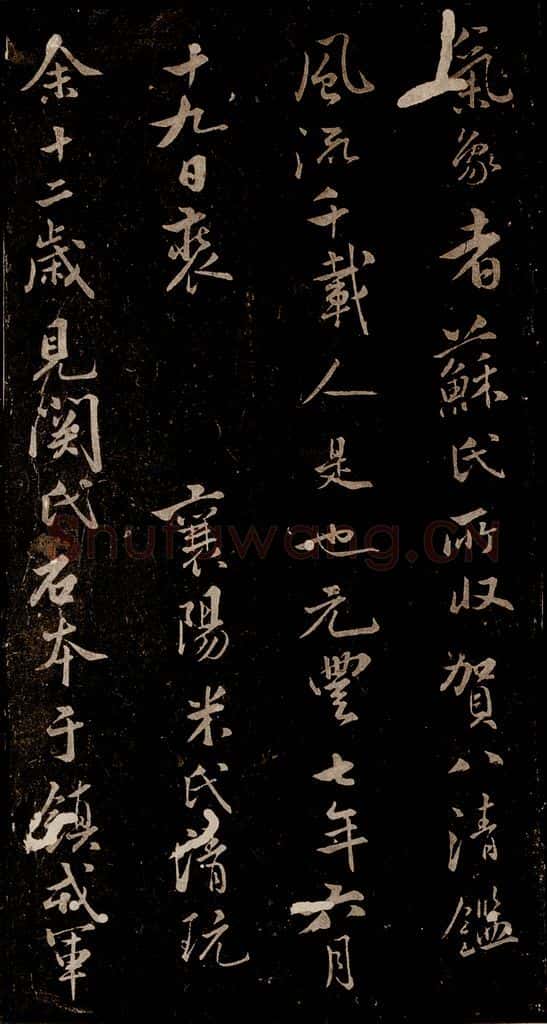 氣象者蘇氏所收賀八清鑑
風流千載人是也元豐七年六月
十九日裝 襄陽米氏清玩
余十二歲見関氏石本于鎮戎軍
Shufawang.CN